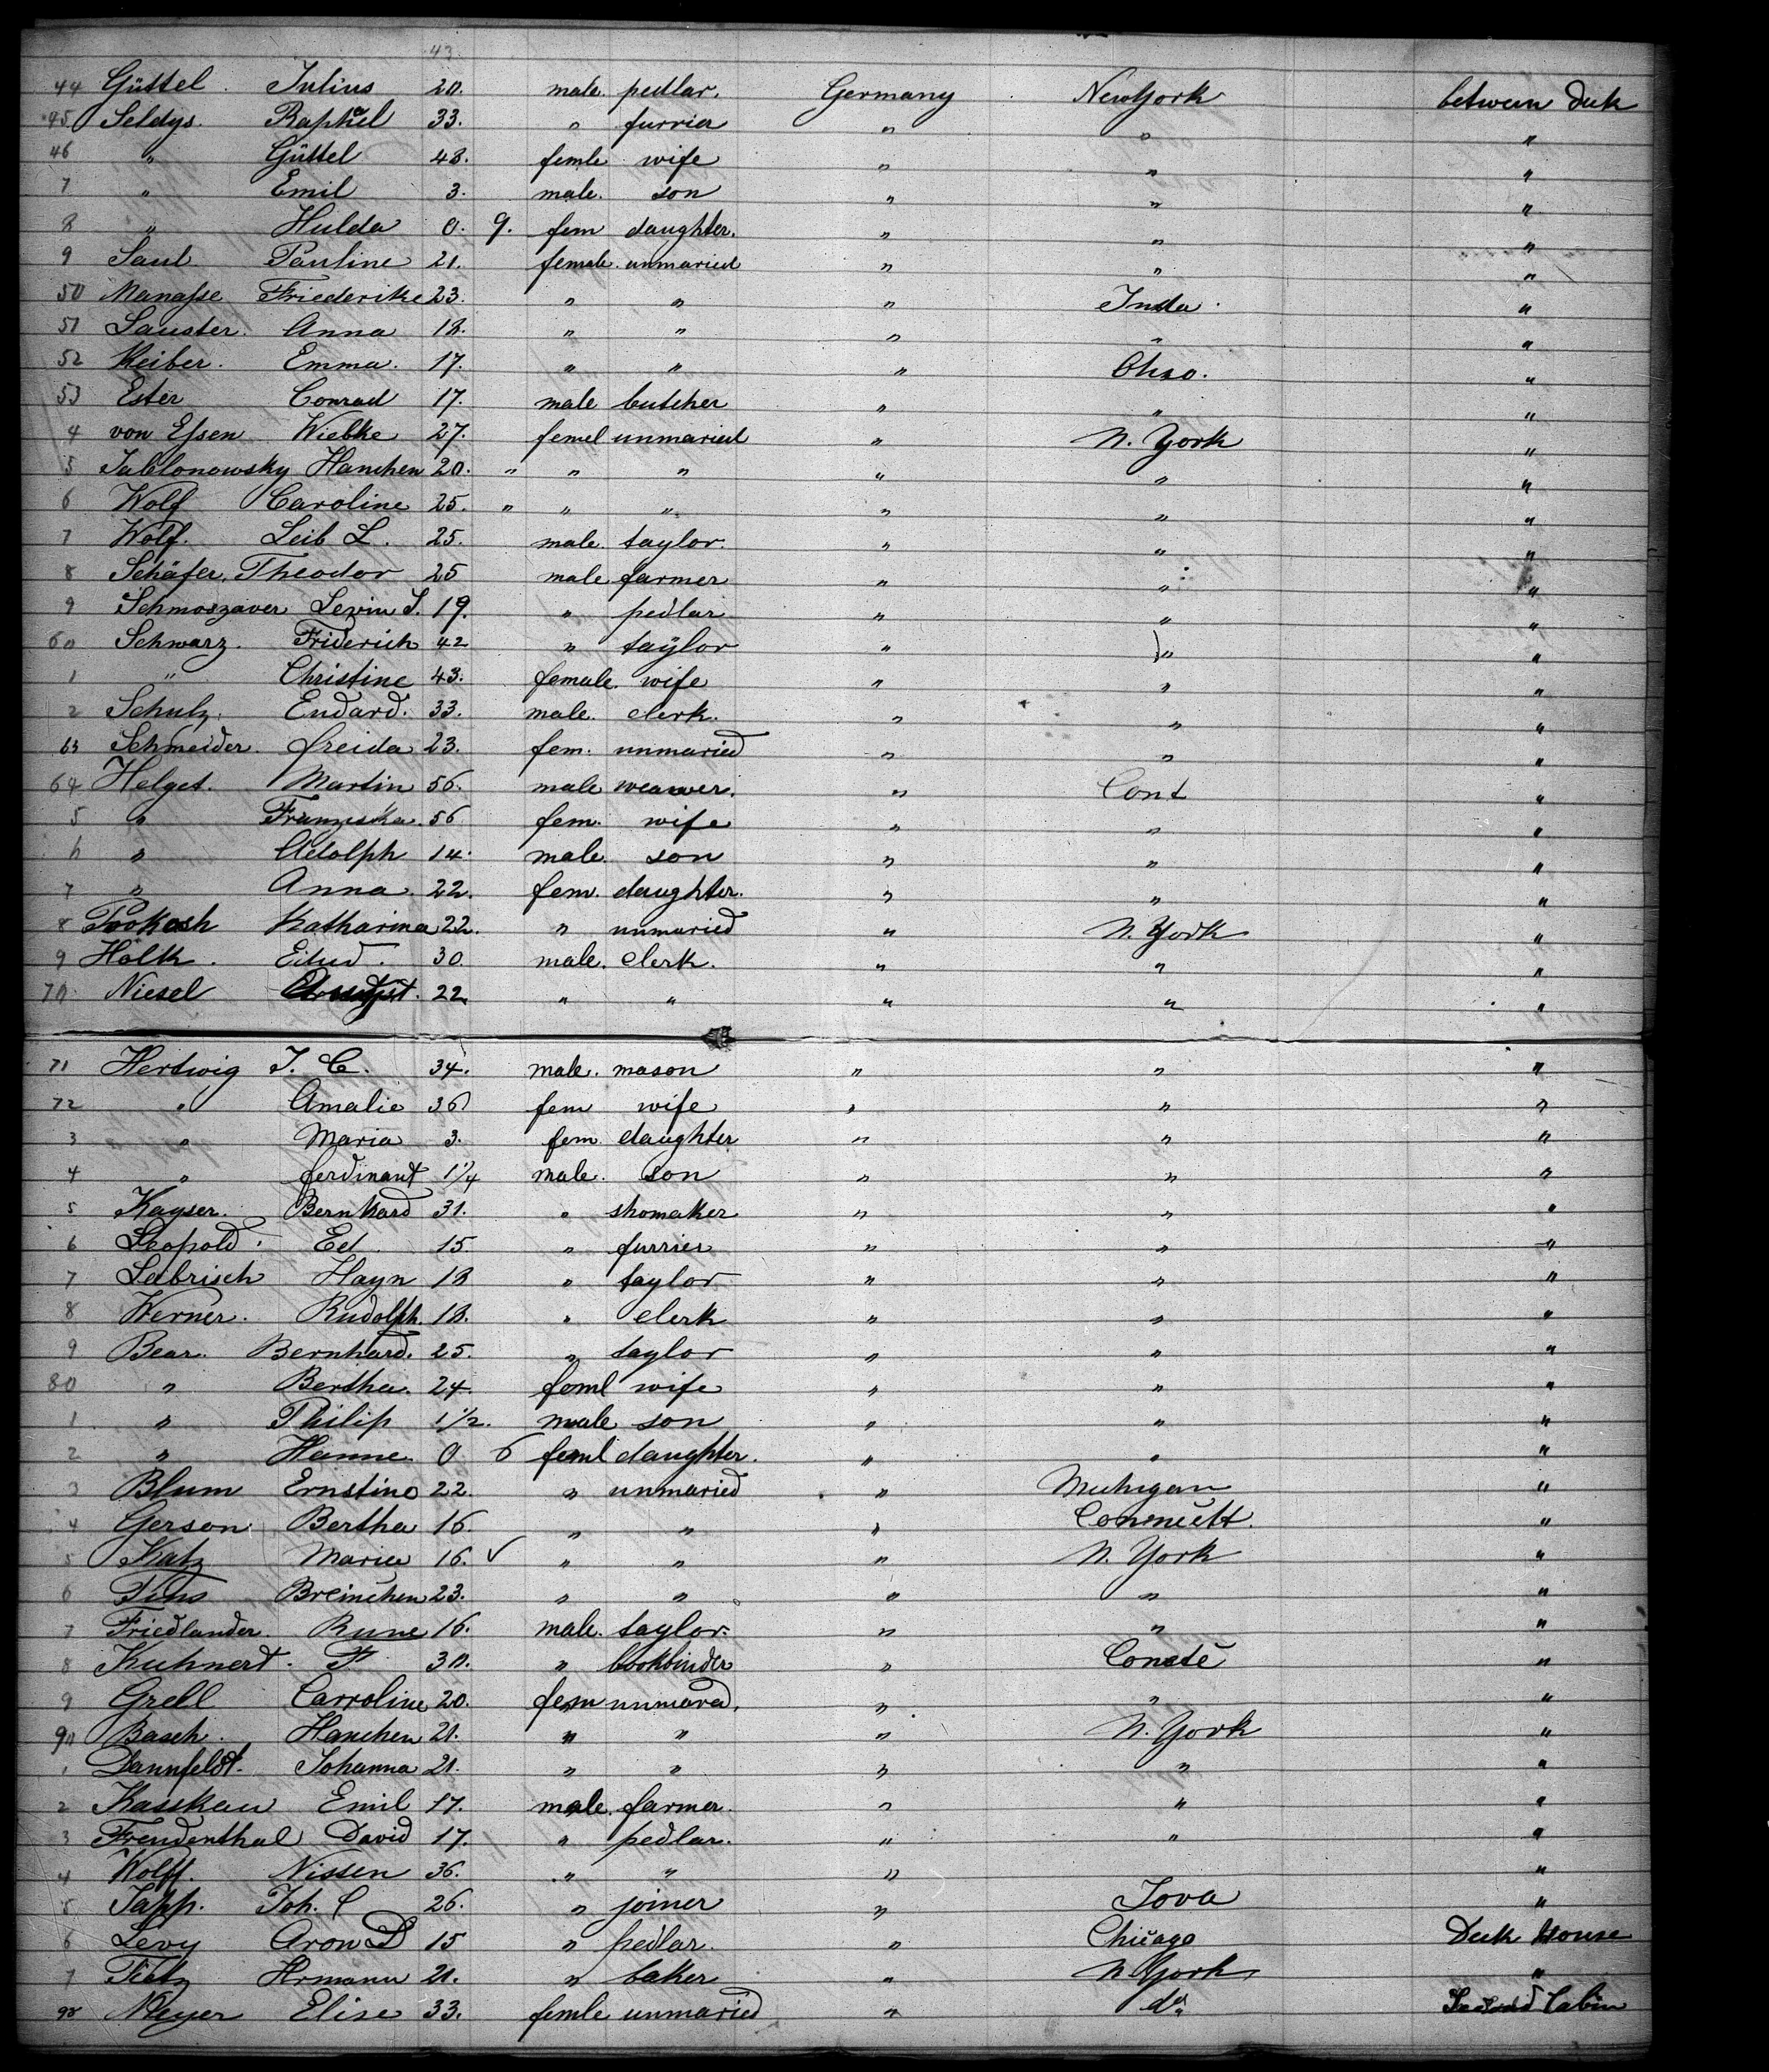 43
44 Güttel. Julius 20. male. pedlar. Germany NewYork between deck
45 Seldys. Raphael 33. " furrier " " "
46 " Güttel 48. femle wife " " "
7 " Emil 3. male. son " " "
8 " Hulda 0. 9. fem daughter. " " "
9 Saul Pauline 21. female. unmaried " " "
50 Manasse Friederike 23. " " " Inda. "
51 Sauster. Anna 18. " " " " "
52 Keiber. Emma. 17. " " " Ohio. "
53 Ester Conrad 17. male butcher " " "
4 von Essen Wiebke 27. femel unmaried " N. York "
5 Jablonowsky Hanchen 20. " " " " " "
6 Wolf Caroline 25. " " " " " "
7 Wolf. Leib L. 25. male. taylor. " " "
8 Schäfer, Theodor 25 male farmer " " "
9 Schmoszaver Levin S. 19. " pedlar " " "
60 Schwarz. Friderich 42 " taylor " " "
1 " Christine 43. female. wife " " "
2 Schulz. Eudard. 33. male. clerk. " " "
63 Schneider. freida 23. fem. unmaried " " "
64 Helget. Martin 56. male weawer. " Cont "
5 " Franziska. 56 fem. wife " " "
6 " Adolph 14. male. son " " "
7 " Anna. 22. fem. daughter. " " "
8 Pookash Katharina 22. " unmaried " N. York "
9 Hölk. 30. male. clerk. " " "
70. Niesel 22. " " " " "
71 Hertwig J. C. 34. male. mason " " "
72 " Amalie 36 fem wife " " "
3 " Maria 3. fem. daughter " " "
4 " ferdinant 1 1/4 male. son " " "
5 Kayser. Bernhard 31. " shomaker " " "
6 Leopold. Ed. 15 " furrier " " "
7 Labrisch Hayn 18 " taylor " " "
8 Werner. Rudolph. 18. " clerk " " "
9 Bear. Bernhard. 25. " taylor " " "
80 " Bertha. 24. feml wife " " "
1 " Philip 1 1/2. male son " " "
2 " Hanne. 0 6 feml daughter. " " "
3 Blum Ernstine 22. " unmaried " Muhigan "
4 Gerson Bertha 16. " " " Connectt. "
5 Katz Maria 16. ✓ " " " N. York "
6 Breinchen 23. " " " " "
7 Friedlander. Rune 16. male. taylor. " " "
8 Kuhnert. F. 30. " bookbinder " "
9 Grell Carroline 20. fem unmared. " " "
90 Basch. Hanchen 21. " " " N. York "
1 Dannfeldt. Johanna 21. " " " " "
2 Kasskau Emil 17. male. farmer. " " "
3 Freudenthal David 17. " pedlar. " " "
4 Wolff. Nissen 36. " " " "
5 Sapp. Joh. C 26. " joiner " Iova "
6 Levy Aron D 15 " pedlar. " Chicago Deck House
7 Tietz Hrmann 21. " baker " N. York "
98 Meyer Elise 33. femle unmaried " do Second Cabin